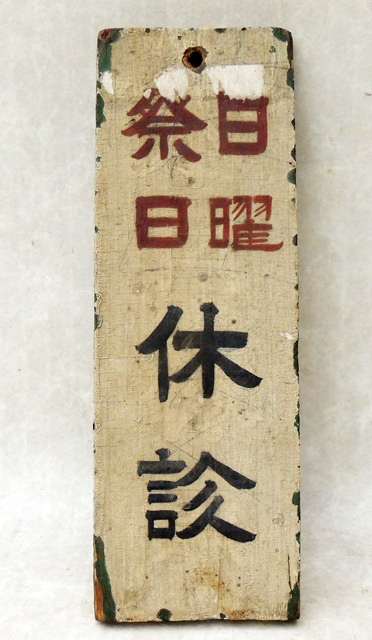 日曜
祭日
休診